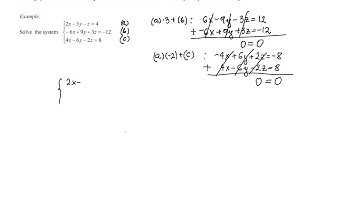 Example:
Solve the system
2x - 3y - z = 4 (a)
-6x + 9y + 3z = -12 (b)
4x - 6y - 2z = 8 (c)
(a)·3 + (b) : 6x - 9y - 3z = 12
+ -6x + 9y + 3z = -12
0 = 0
(a)(-2) + (c) : -4x + 6y + 2z = -8
+ 4x - 6y - 2z = 8
0 = 0
2x -